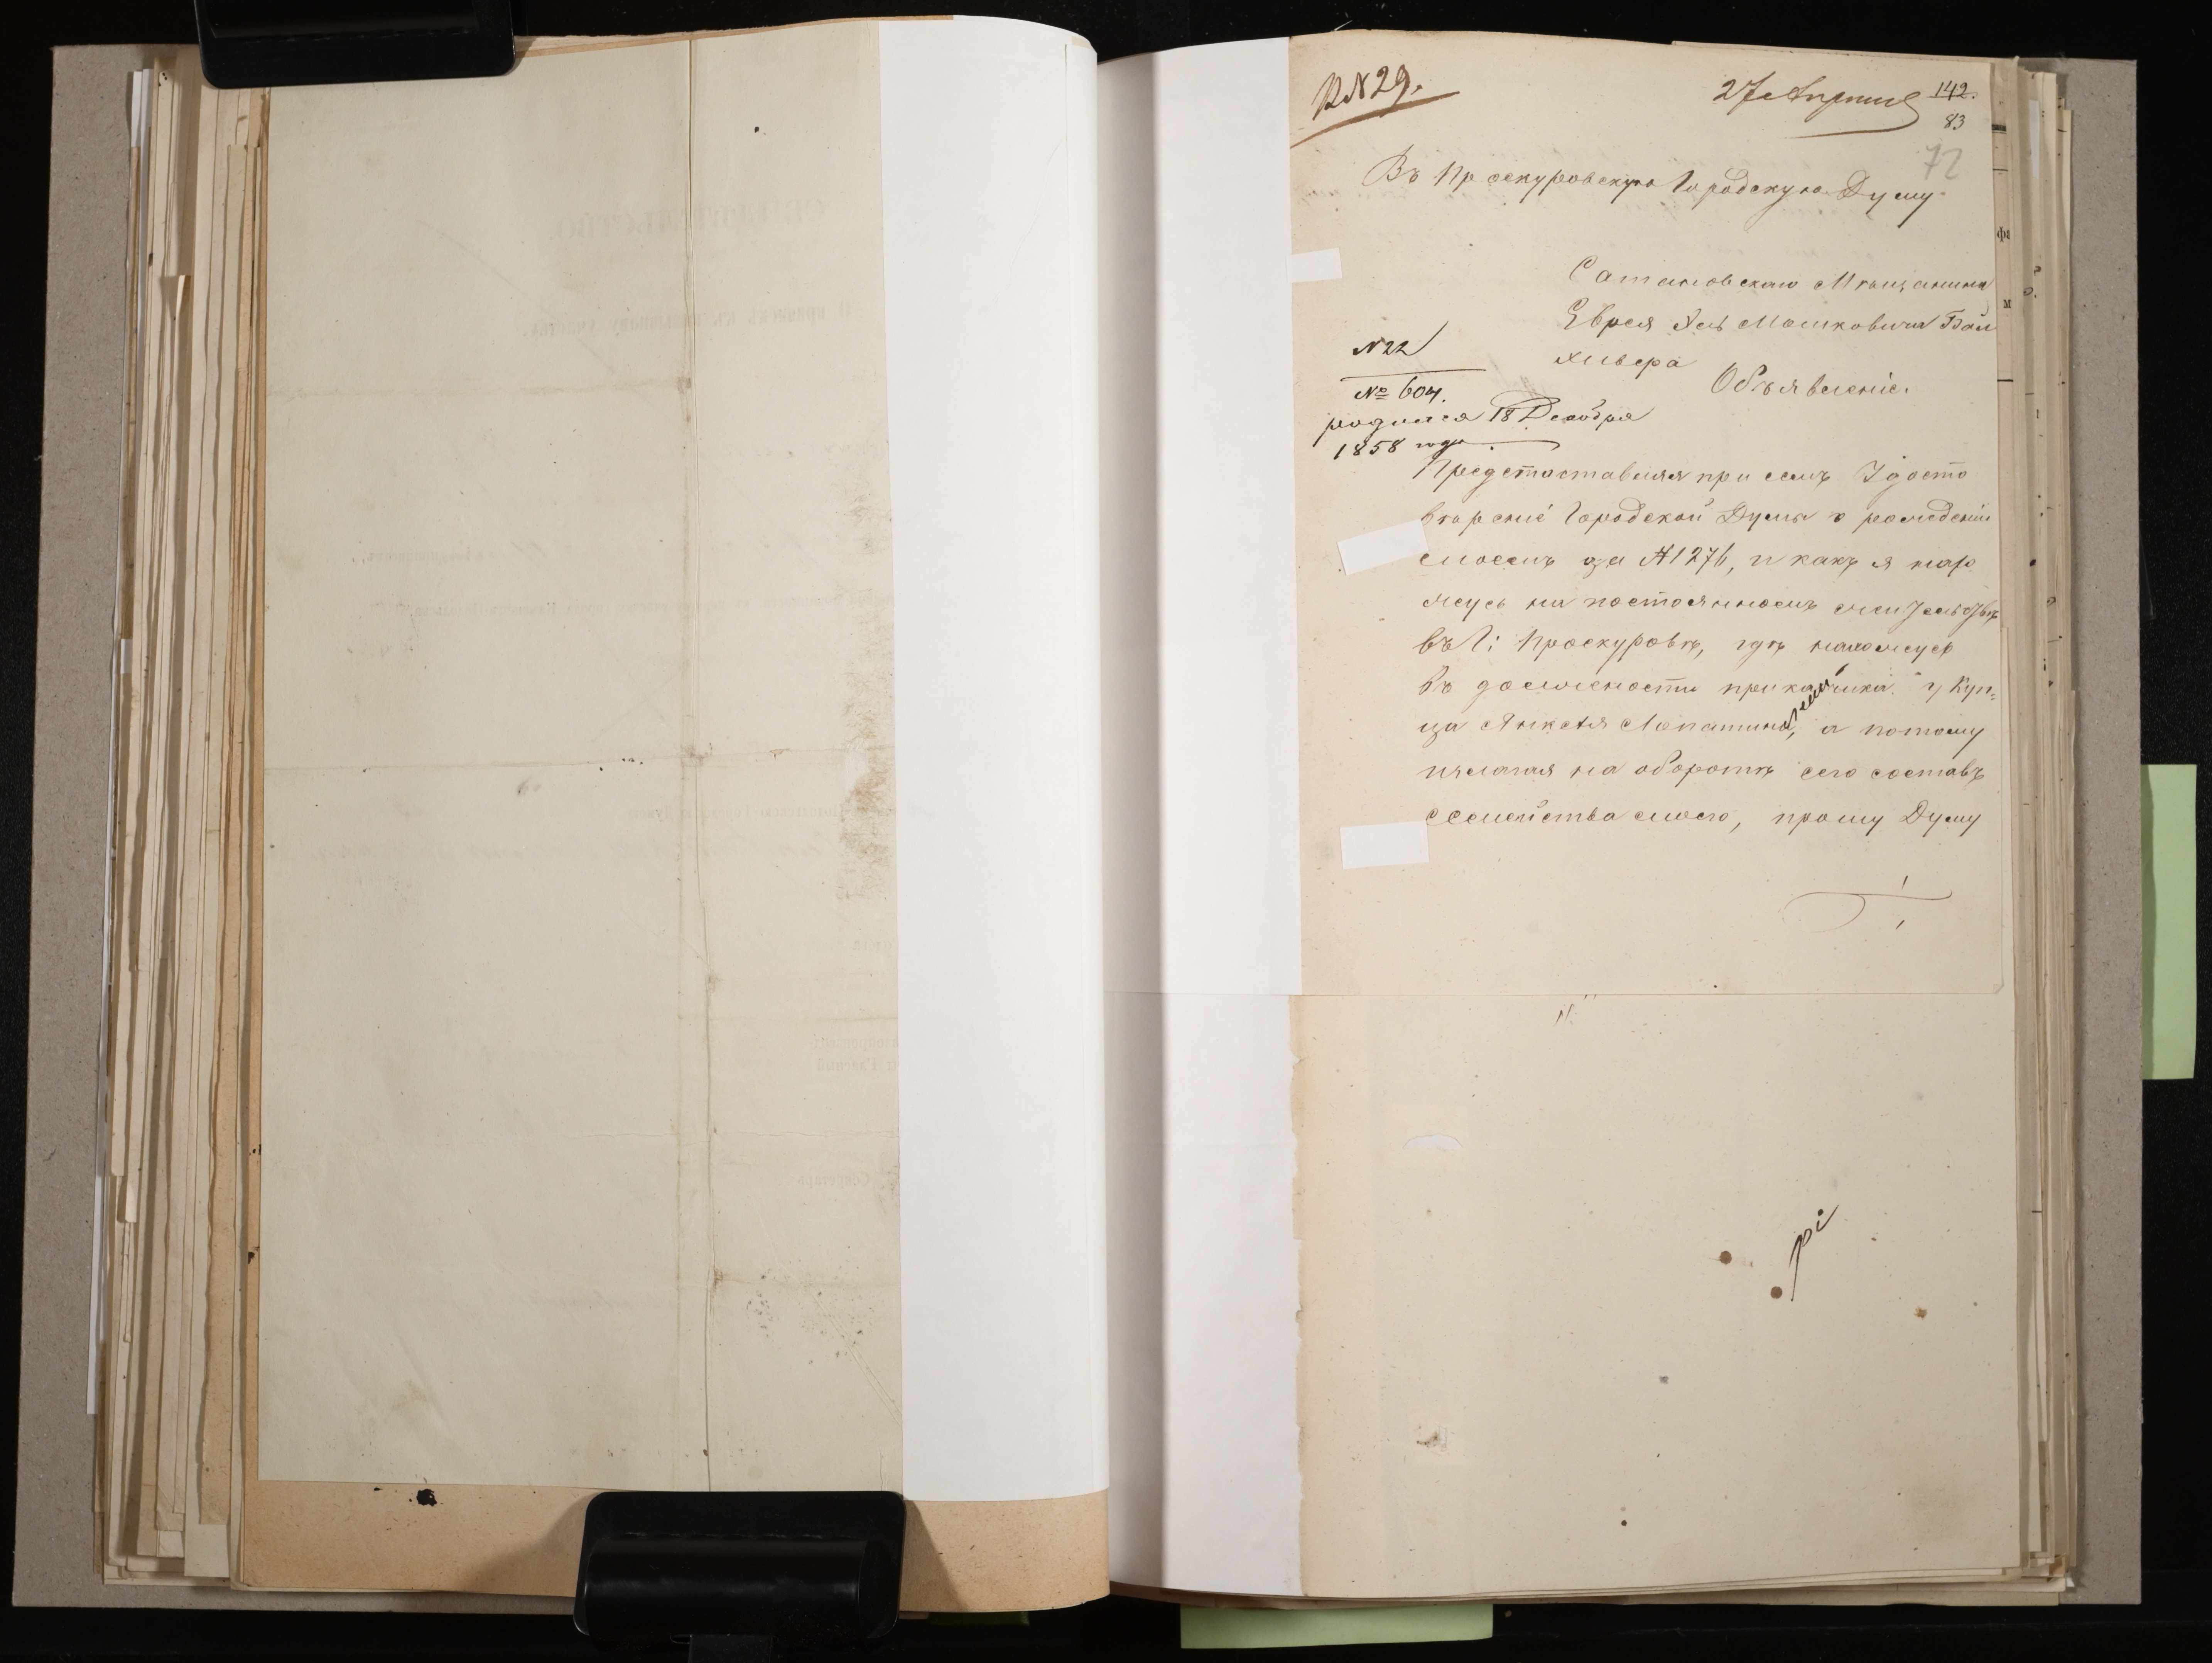 № 29.
27 Апрѣля 142.
83
72
Въ Проскуровскую Городскую Думу
Сатановскаго Мѣщанина
Еврея Мошковича Бал
№ 22
хивера
№ 604.
Объявленіе.
родился 18 Декабря
1858 года
Предстоставляя при семъ Удосто
вѣреніе Городской Думы о рождении
моемъ за №1276, и какъ я нахо
жусь на постоянномъ жительствѣ
въ Г: Проскуровѣ, гдѣ нахожусь
въ должности прикащика у Куп=
ца Янкеля Лопатина, а потому
излагая на оборотѣ сего составъ
семейства моего, прошу Думу